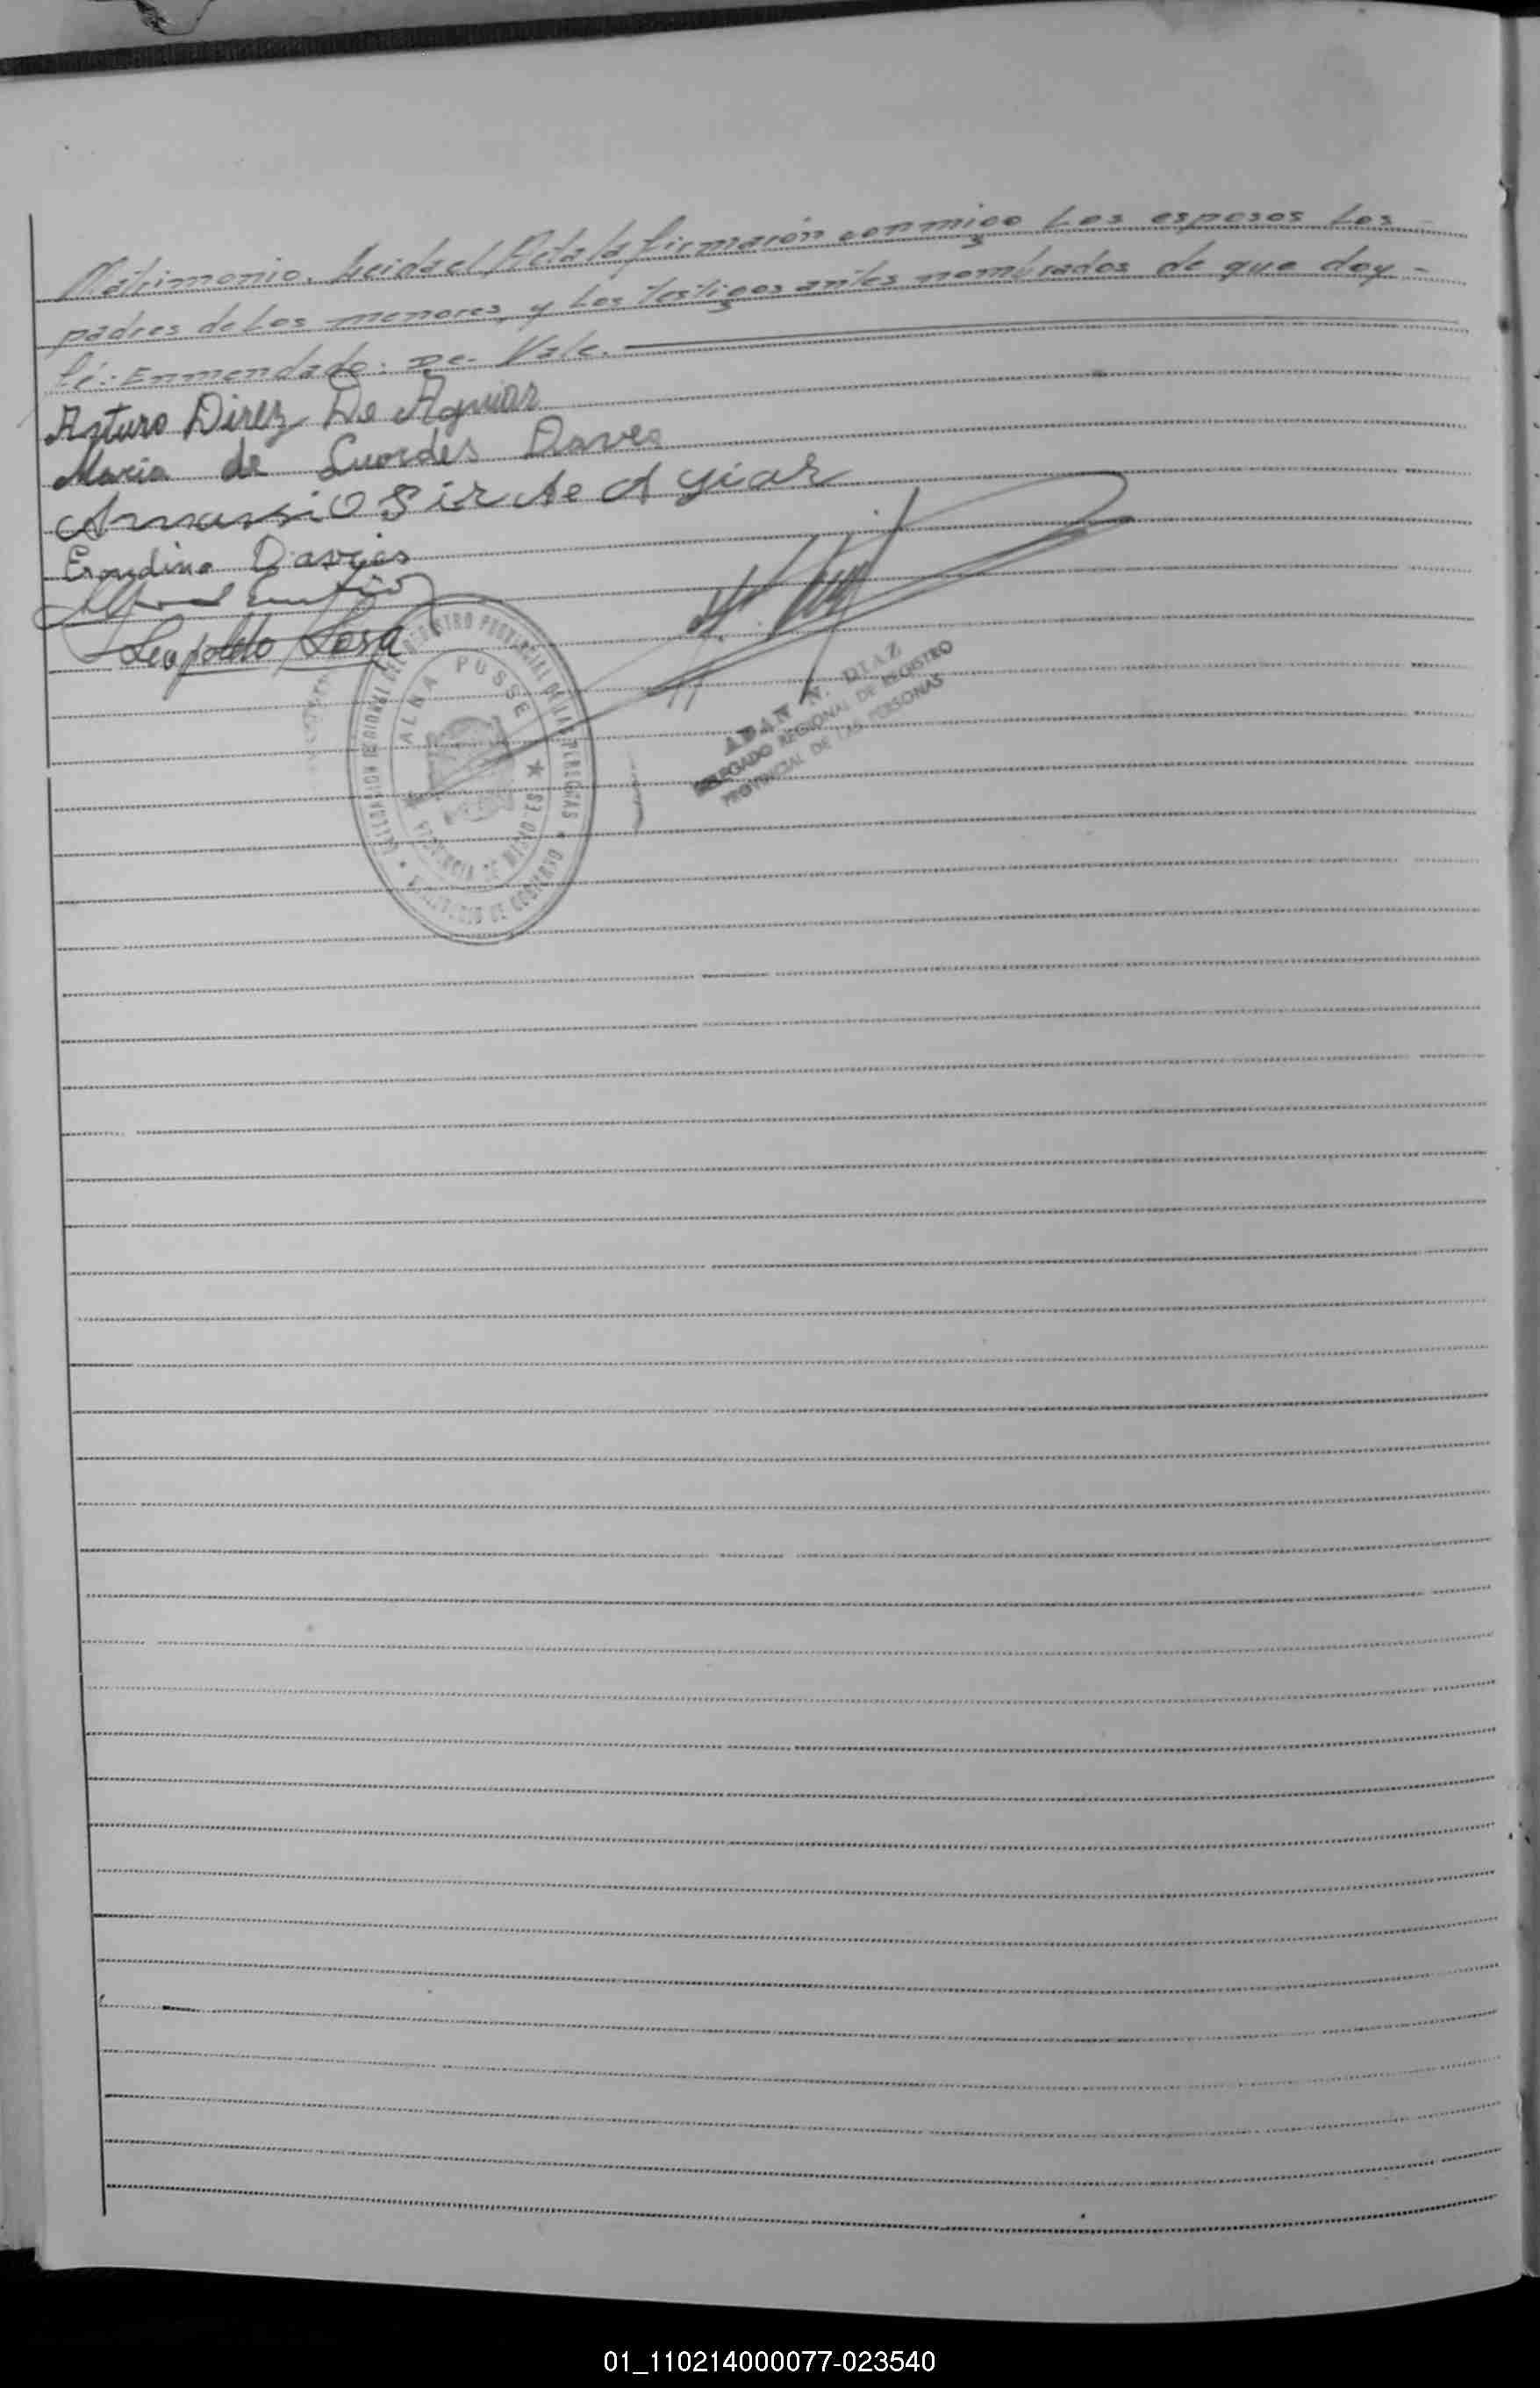 Matrimonio. Leida el Acta la firmarón conmigo Los esposos Los
padres de Los menores, y Los testigos antes nombrados de que doy -
fé: Enmendado: De- Vale.
Arturo Direz De Aguiar
Maria de Luordes Daves
Amansio Sir de Agiar
Erondina Davies
Leopoldo Sosa
DELEGACION REGIONAL DEL REGISTRO PROVINCIAL DE LAS PERSONAS
ALBA POSSE
PROVINCIA DE MISIONES
MINISTERIO DE GOBIERNO
ADAN N. DIAZ
DELEGADO REGIONAL DE REGISTRO
PROVINCIAL DE LAS PERSONAS
01_110214000077-023540